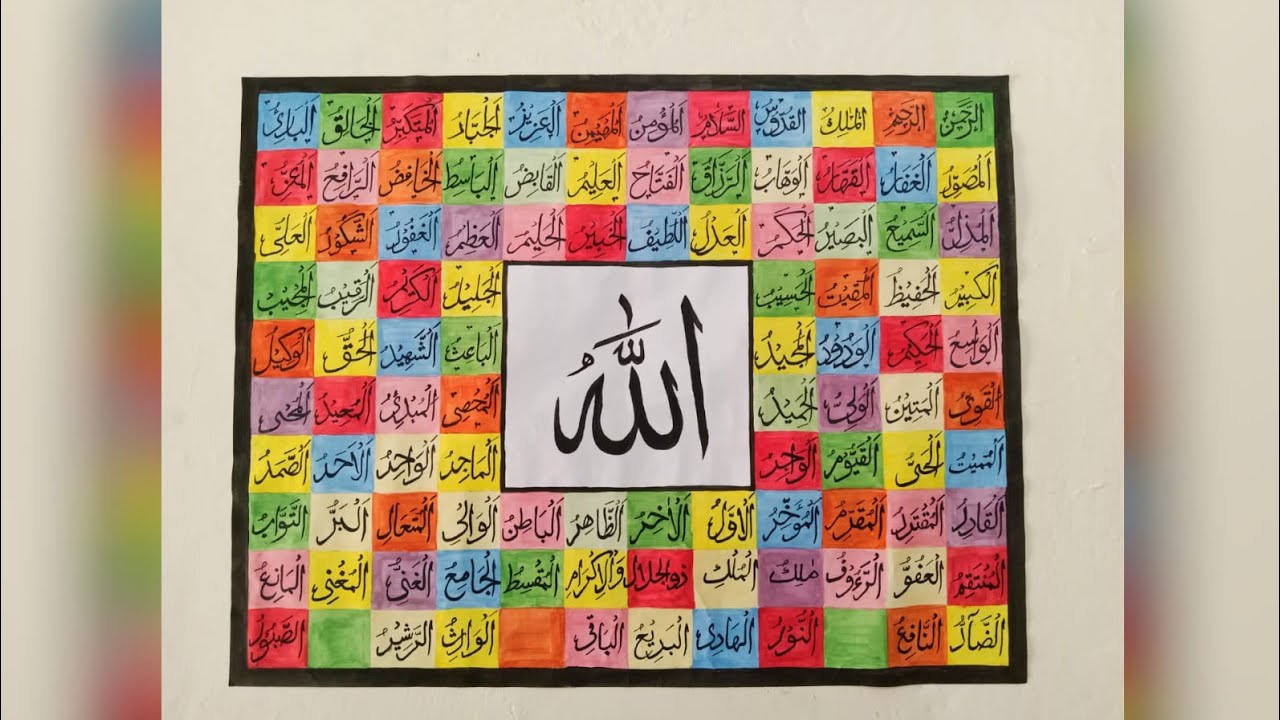 اَلرَّحْمٰنُ اَلرَّحِيْمُ اَلْمَلِكُ اَلْقُدُّوْسُ اَلسَّلَامُ اَلْمُؤْمِنُ اَلْمُهَيْمِنُ اَلْعَزِيْزُ اَلْجَبَّارُ اَلْمُتَكَبِّرُ اَلْخَالِقُ اَلْبَارِئُ
اَلْمُصَوِّرُ اَلْغَفَّارُ اَلْقَهَّارُ اَلْوَهَّابُ اَلرَّزَّاقُ اَلْفَتَّاحُ اَلْعَلِيْمُ اَلْقَابِضُ اَلْبَاسِطُ اَلْخَافِضُ اَلرَّافِعُ اَلْمُعِزُّ
اَلْمُذِلُّ اَلسَّمِيْعُ اَلْبَصِيْرُ اَلْحَكَمُ اَلْعَدْلُ اَللَّطِيْفُ اَلْخَبِيْرُ اَلْحَلِيْمُ اَلْعَظِيْمُ اَلْغَفُوْرُ اَلشَّكُوْرُ اَلْعَلِىُّ
اَلْكَبِيْرُ اَلْحَفِيْظُ اَلْمُقِيْتُ اَلْحَسِيْبُ اَلْجَلِيْلُ اَلْكَرِيْمُ اَلرَّقِيْبُ اَلْمُجِيْبُ
اَلْوَاسِعُ اَلْحَكِيْمُ اَلْوَدُوْدُ اَلْمَجِيْدُ اَلْبَاعِثُ اَلشَّهِيْدُ اَلْحَقُّ اَلْوَكِيْلُ
اَلْقَوِىُّ اَلْمَتِيْنُ اَلْوَلِىُّ اَلْحَمِيْدُ اَلْمُحْصِى اَلْمُبْدِئُ اَلْمُعِيْدُ اَلْمُحْىِ
اَلْمُمِيْتُ اَلْحَىُّ اَلْقَيُّوْمُ اَلْوَاجِدُ اَلْمَاجِدُ اَلْوَاحِدُ اَلْاَحَدُ اَلصَّمَدُ
اَللّٰهُ
اَلْقَادِرُ اَلْمُقْتَدِرُ اَلْمُقَدِّمُ اَلْمُؤَخِّرُ اَلْاَوَّلُ اَلْاٰخِرُ اَلظَّاهِرُ اَلْبَاطِنُ اَلْوَالِى اَلْمُتَعَالِ اَلْبَرُّ اَلتَّوَّابُ
اَلْمُنْتَقِمُ اَلْعَفُوُّ اَلرَّءُوْفُ مٰلِكُ الْمُلْكِ ذُوالْجَلَالِ وَالْاِكْرَامِ اَلْمُقْسِطُ اَلْجَامِعُ اَلْغَنِىُّ اَلْمُغْنِى اَلْمَانِعُ
اَلضَّآرُّ اَلنَّافِعُ اَلنُّوْرُ اَلْهَادِى اَلْبَدِيْعُ اَلْبَاقِى اَلْوَارِثُ اَلرَّشِيْدُ اَلصَّبُوْرُ